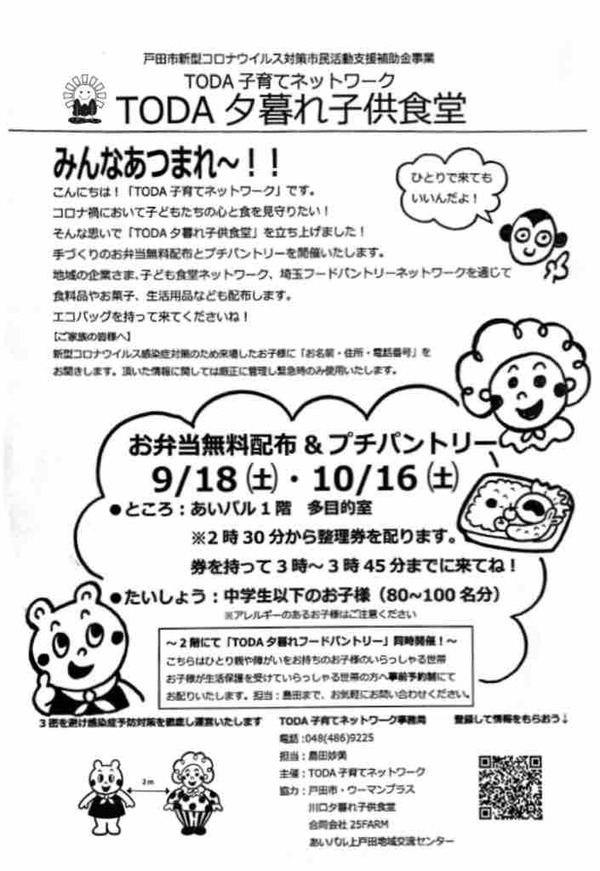 戸田市新型コロナウイルス対策市民活動支援補助金事業
TODA 子育てネットワーク
TODA 夕暮れ子供食堂
みんなあつまれ～！！
ひとりで来ても
いいんだよ！
こんにちは！「TODA 子育てネットワーク」です。
コロナ禍において子どもたちの心と食を見守りたい！
そんな思いで「TODA 夕暮れ子供食堂」を立ち上げました！
手づくりのお弁当無料配布とプチパントリーを開催いたします。
地域の企業さま、子ども食堂ネットワーク、埼玉フードパントリーネットワークを通じて
食料品やお菓子、生活用品なども配布します。
エコバッグを持って来てくださいね！
【ご家族の皆様へ】
新型コロナウイルス感染症対策のため来場したお子様に「お名前・住所・電話番号」を
お聞きします。頂いた情報に関しては厳正に管理し緊急時のみ使用いたします。
お弁当無料配布 & プチパントリー
9/18 ㈯・10/16 ㈯
●ところ：あいパル１階　多目的室
※２時３０分から整理券を配ります。
券を持って３時～３時４５分までに来てね！
●たいしょう：中学生以下のお子様（80~100 名分）
※アレルギーのあるお子様はご注意ください
～２階にて「TODA 夕暮れフードパントリー」同時開催！～
こちらはひとり親や障がいをお持ちのお子様のいらっしゃる世帯
お子様が生活保護を受けていらっしゃる世帯の方へ事前予約制にて
お配りいたします。担当：島田まで、お気軽にお問い合わせください。
３密を避け感染症予防対策を徹底し運営いたします
2m
TODA 子育てネットワーク事務局
電話：048(486)9225
担当：島田妙美
主催：TODA 子育てネットワーク
協力：戸田市・ウーマンプラス
川口夕暮れ子供食堂
合同会社 25FARM
あいパル上戸田地域交流センター
登録して情報をもらおう↓